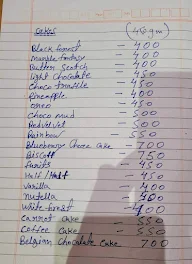 Cakes (450gm)
Black forest - 400
Marble fantasy - 400
Butter Scotch - 400
Light chocolate - 450
Choco truffle - 450
Pineapple - 400
Oreo - 450
Choco mud - 500
Redvelvet - 500
Rainbow - 550
Blueberry Cheese Cake - 700
Biscoff - 750
Fruits - 450
Half/Half - 450
Vanilla - 400
Nutella - 500
White forest - 400
Carrot cake - 550
Coffee cake - 550
Belgium Chocolate Cake 700